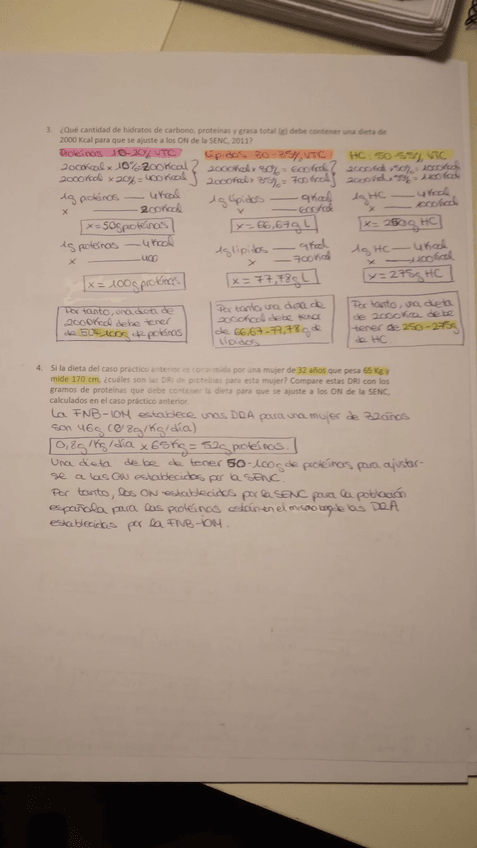 3. ¿Qué cantidad de hidratos de carbono, proteínas y grasa total (g) debe contener una dieta de
2000 Kcal para que se ajuste a los ON de la SENC, 2011?
Proteínas 10-20% VTC
2000Kcal x 10% = 200Kcal
2000Kcal x 20% = 400Kcal
1g proteínas — 4Kcal
x — 200Kcal
x = 50g proteínas
1g proteínas — 4Kcal
x — 400
x = 100g proteínas
Por tanto, una dieta de
2000Kcal debe tener
de 50-100g de proteínas
Lípidos 30-35% VTC
2000Kcal x 30% = 600Kcal
2000Kcal x 35% = 700Kcal
1g lípidos — 9Kcal
x — 600Kcal
x = 66,67g L
1g lípidos — 9Kcal
x — 700Kcal
x = 77,78g L
Por tanto una dieta de
2000Kcal debe tener
de 66,67-77,78g de
lípidos
HC: 50-55% VTC
2000Kcal x 50% = 1000Kcal
2000Kcal x 55% = 1100Kcal
1g HC — 4Kcal
x — 1000Kcal
x = 250g HC
1g HC — 4Kcal
x — 1100Kcal
x = 275g HC
Por tanto, una dieta
de 2000Kcal debe
tener de 250-275g
de HC
4. Si la dieta del caso práctico anterior es consumida por una mujer de 32 años que pesa 65 Kg y
mide 170 cm, ¿cuáles son las DRI de proteínas para esta mujer? Compare estas DRI con los
gramos de proteínas que debe contener la dieta para que se ajuste a los ON de la SENC,
calculados en el caso práctico anterior.
La FNB-IOM establece unas DRA para una mujer de 32 años
son 46g (0'8g/Kg/día)
0,8g/Kg/día x 65Kg = 52g proteínas.
Una dieta debe de tener 50-100g de proteínas para ajustar-
se a los ON establecidos por la SENC.
Por tanto, los ON establecidos por la SENC para la población
española para las proteínas están en el mismo rango de las DRA
establecidas por la FNB-IOM.